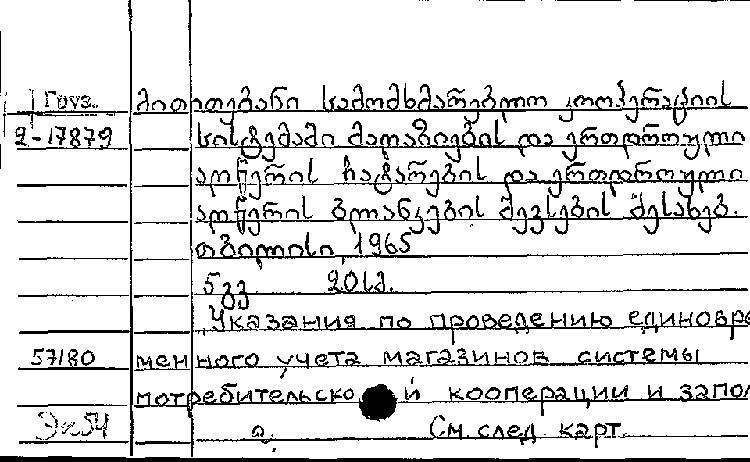 Груз. მითითებანი სამომხმარებლო კოოპერაციის
2-17879 სისტემაში მაღაზიების და ერთდროული
აღწერის ჩატარების და ერთდროული
აღწერის ბლანკების შევსების შესახებ.
თბილისი, 1965
5 გვ. 20 სმ.
Указания по проведению единовре
57180 менного учета магазинов системы
потребительско й кооперации и запол
Эк54 а. См. след. карт.